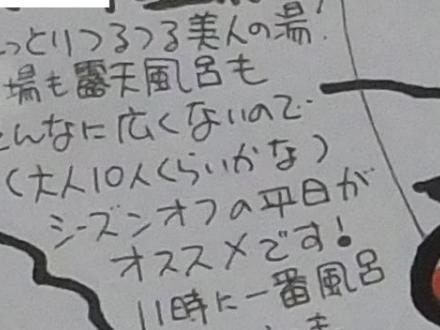 っとりつるつる美人の湯!
場も露天風呂も
そんなに広くないので
(大人10人くらいかな)
シーズンオフの平日が
オススメです!
11時に一番風呂